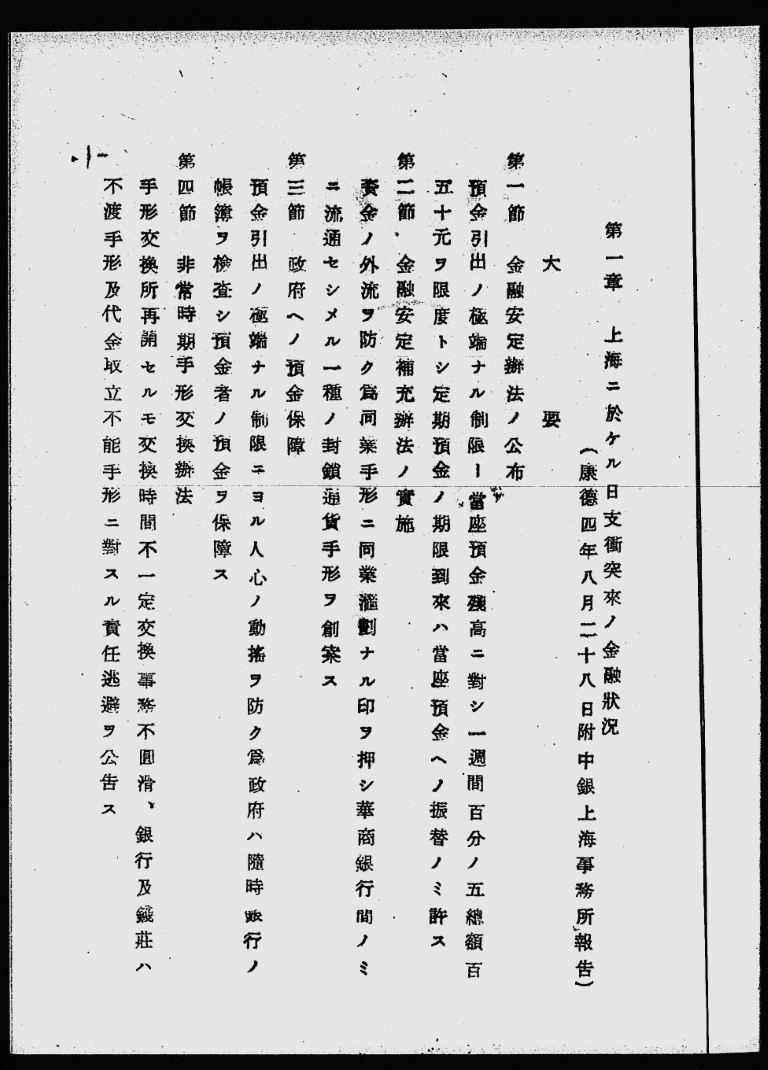 第一章 上海ニ於ケル日支衝突來ノ金融狀况
(康德四年八月二十八日附中銀上海事務所報告)
大要
第一節 金融安定辦法ノ公布
預金引出ノ極端ナル制限ー當座預金殘高ニ對シ一週間百分ノ五總額百
五十元ヲ限度トシ定期預金ノ期限到來ハ當座預金ヘノ振替ノミ許ス
第二節、金融安定補充辦法ノ實施
資金ノ外流ヲ防ク爲同業手形ニ同業滙劃ナル印ヲ押シ華商銀行間ノミ
ニ流通セシメル一種ノ封鎖通貨手形ヲ創案ス
第三節 政府ヘノ預金保障
預金引出ノ極端ナル制限ニヨル人心ノ動搖ヲ防ク爲政府ハ隨時銀行ノ
帳簿ヲ檢查シ預金者ノ預金ヲ保障ス
第四節 非常時期手形交換辦法
手形交換所再開セルモ交換時間不一定交換事務不圓滑、銀行及錢莊ハ
不渡手形及代金取立不能手形ニ對スル責任逃避ヲ公告ス